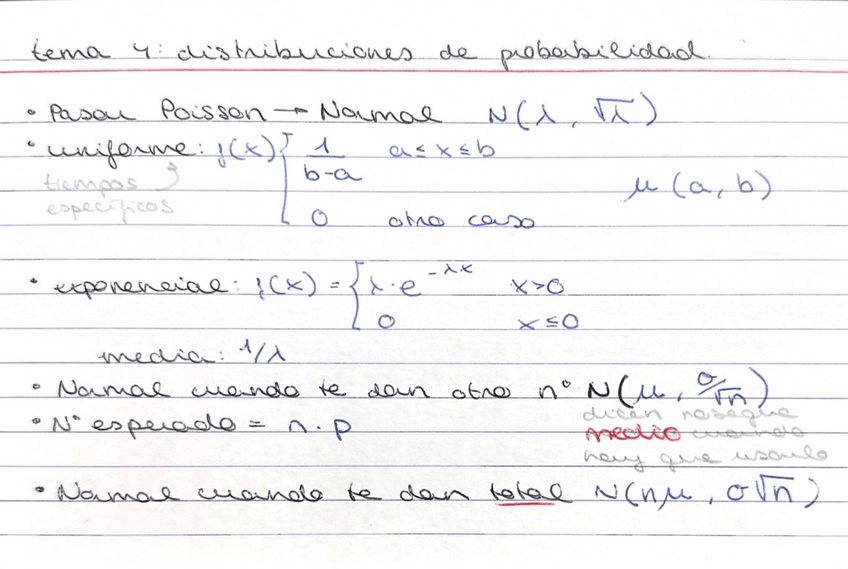 tema 4: distribuciones de probabilidad.
• Pasar Poisson → Normal N(λ, √λ)
• uniforme: f(x) { 1/(b-a) a ≤ x ≤ b
tiempos específicos
μ(a, b)
0 otro caso
• exponencial: f(x) = { λ·e^(-λx) x>0
0 x≤0
media: 1/λ
• Normal cuando te dan otro nº N(μ, σ/√n)
• Nº esperado = n·p
dicen
medio cuando
hay que usarlo
• Normal cuando te dan total N(nμ, σ√n)